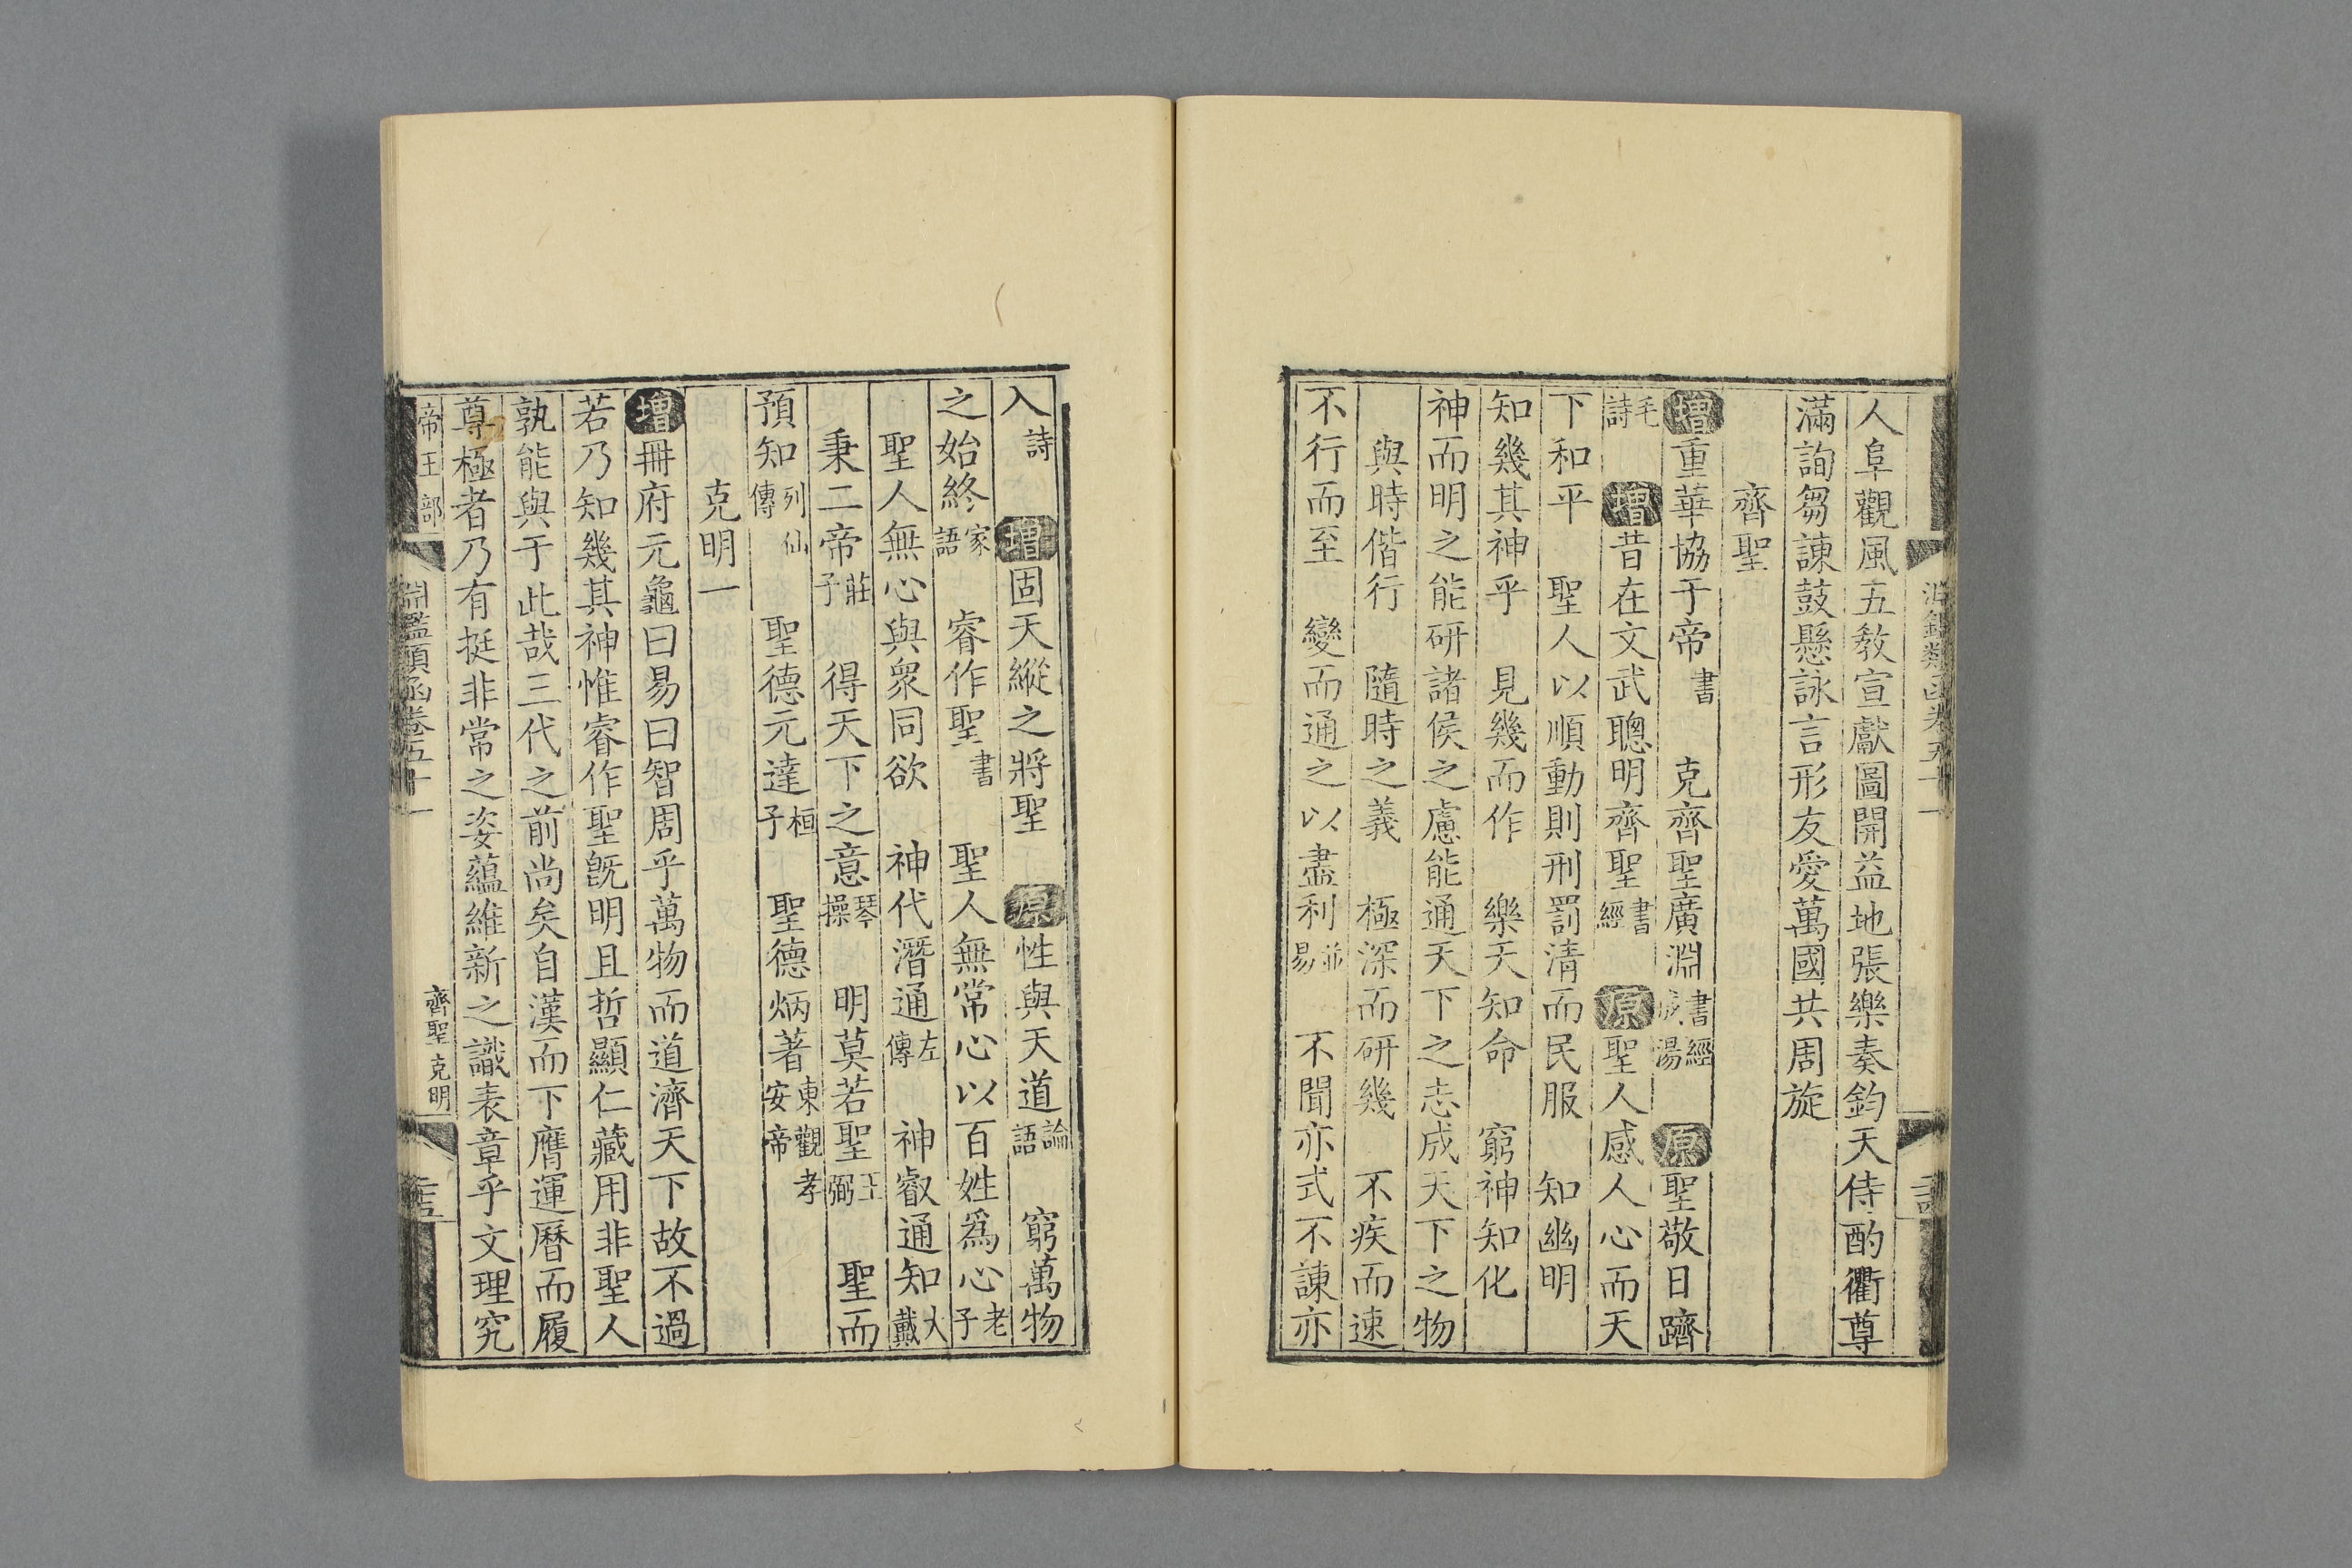 人阜觀風五教宣獻圖開益地張樂奏鈞天侍酌衢尊
滿詢芻諫鼓懸詠言形友愛萬國共周旋
齊聖
增重華協于帝書 克齊聖廣淵書經成湯 原聖敬日躋
毛詩 增昔在文武聰明齊聖書經 原聖人感人心而天
下和平 聖人以順動則刑罰清而民服 知幽明
知幾其神乎 見幾而作 樂天知命 窮神知化
神而明之能研諸侯之慮能通天下之志成天下之物
與時偕行 隨時之義 極深而研幾 不疾而速
不行而至 變而通之以盡利並易 不聞亦式不諫亦
入詩 增固天縱之將聖 原性與天道論語 窮萬物
之始終家語 睿作聖書 聖人無常心以百姓爲心老子
聖人無心與衆同欲 神代潛通左傳 神叡通知大戴
秉二帝莊子 得天下之意琴操 明莫若聖王弼 聖而
預知列仙傳 聖德元達桓子 聖德炳著東觀孝安帝
克明一
增冊府元龜曰易曰智周乎萬物而道濟天下故不過
若乃知幾其神惟睿作聖旣明且哲顯仁藏用非聖人
孰能與于此哉三代之前尚矣自漢而下膺運曆而履
尊極者乃有挺非常之姿蘊維新之識表章乎文理究
帝王部 淵鑑類函卷五十一 齊聖 克明